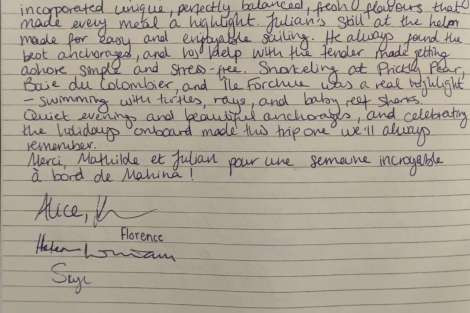 incorporated unique, perfectly balanced, fresh flavours that
made every meal a highlight. Julian's skill at the helm
made for easy and enjoyable sailing. He always found the
best anchorages, and his help with the tender made getting
ashore simple and stress-free. Snorkeling at Prickly Pear,
Baie du Colombier, and Île Forchue was a real highlight
- swimming with turtles, rays, and baby reef sharks.
Quiet evenings and beautiful anchorages, and celebrating
the holidays onboard made this trip one we'll always
remember.
Merci, Mathilde et Julian pour une semaine incroyable
à bord de Mahina!
Alice,
Florence
Helen